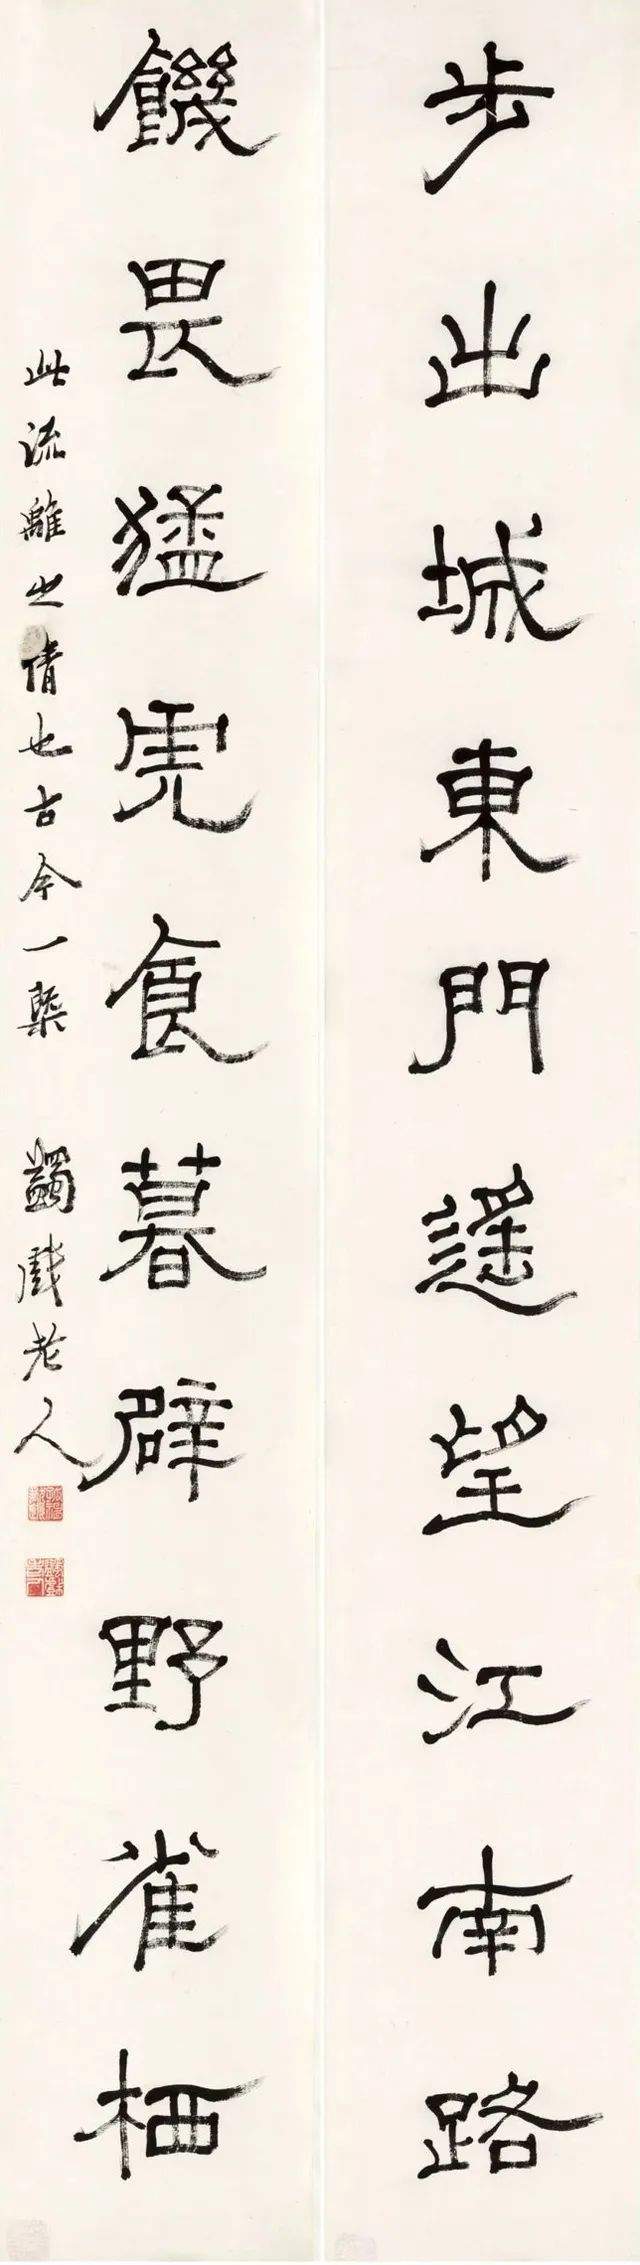 步出城東門遙望江南路
饑畏猛虎食暮辟野雀栖
此流離之情也古今一槩 蠲戲老人